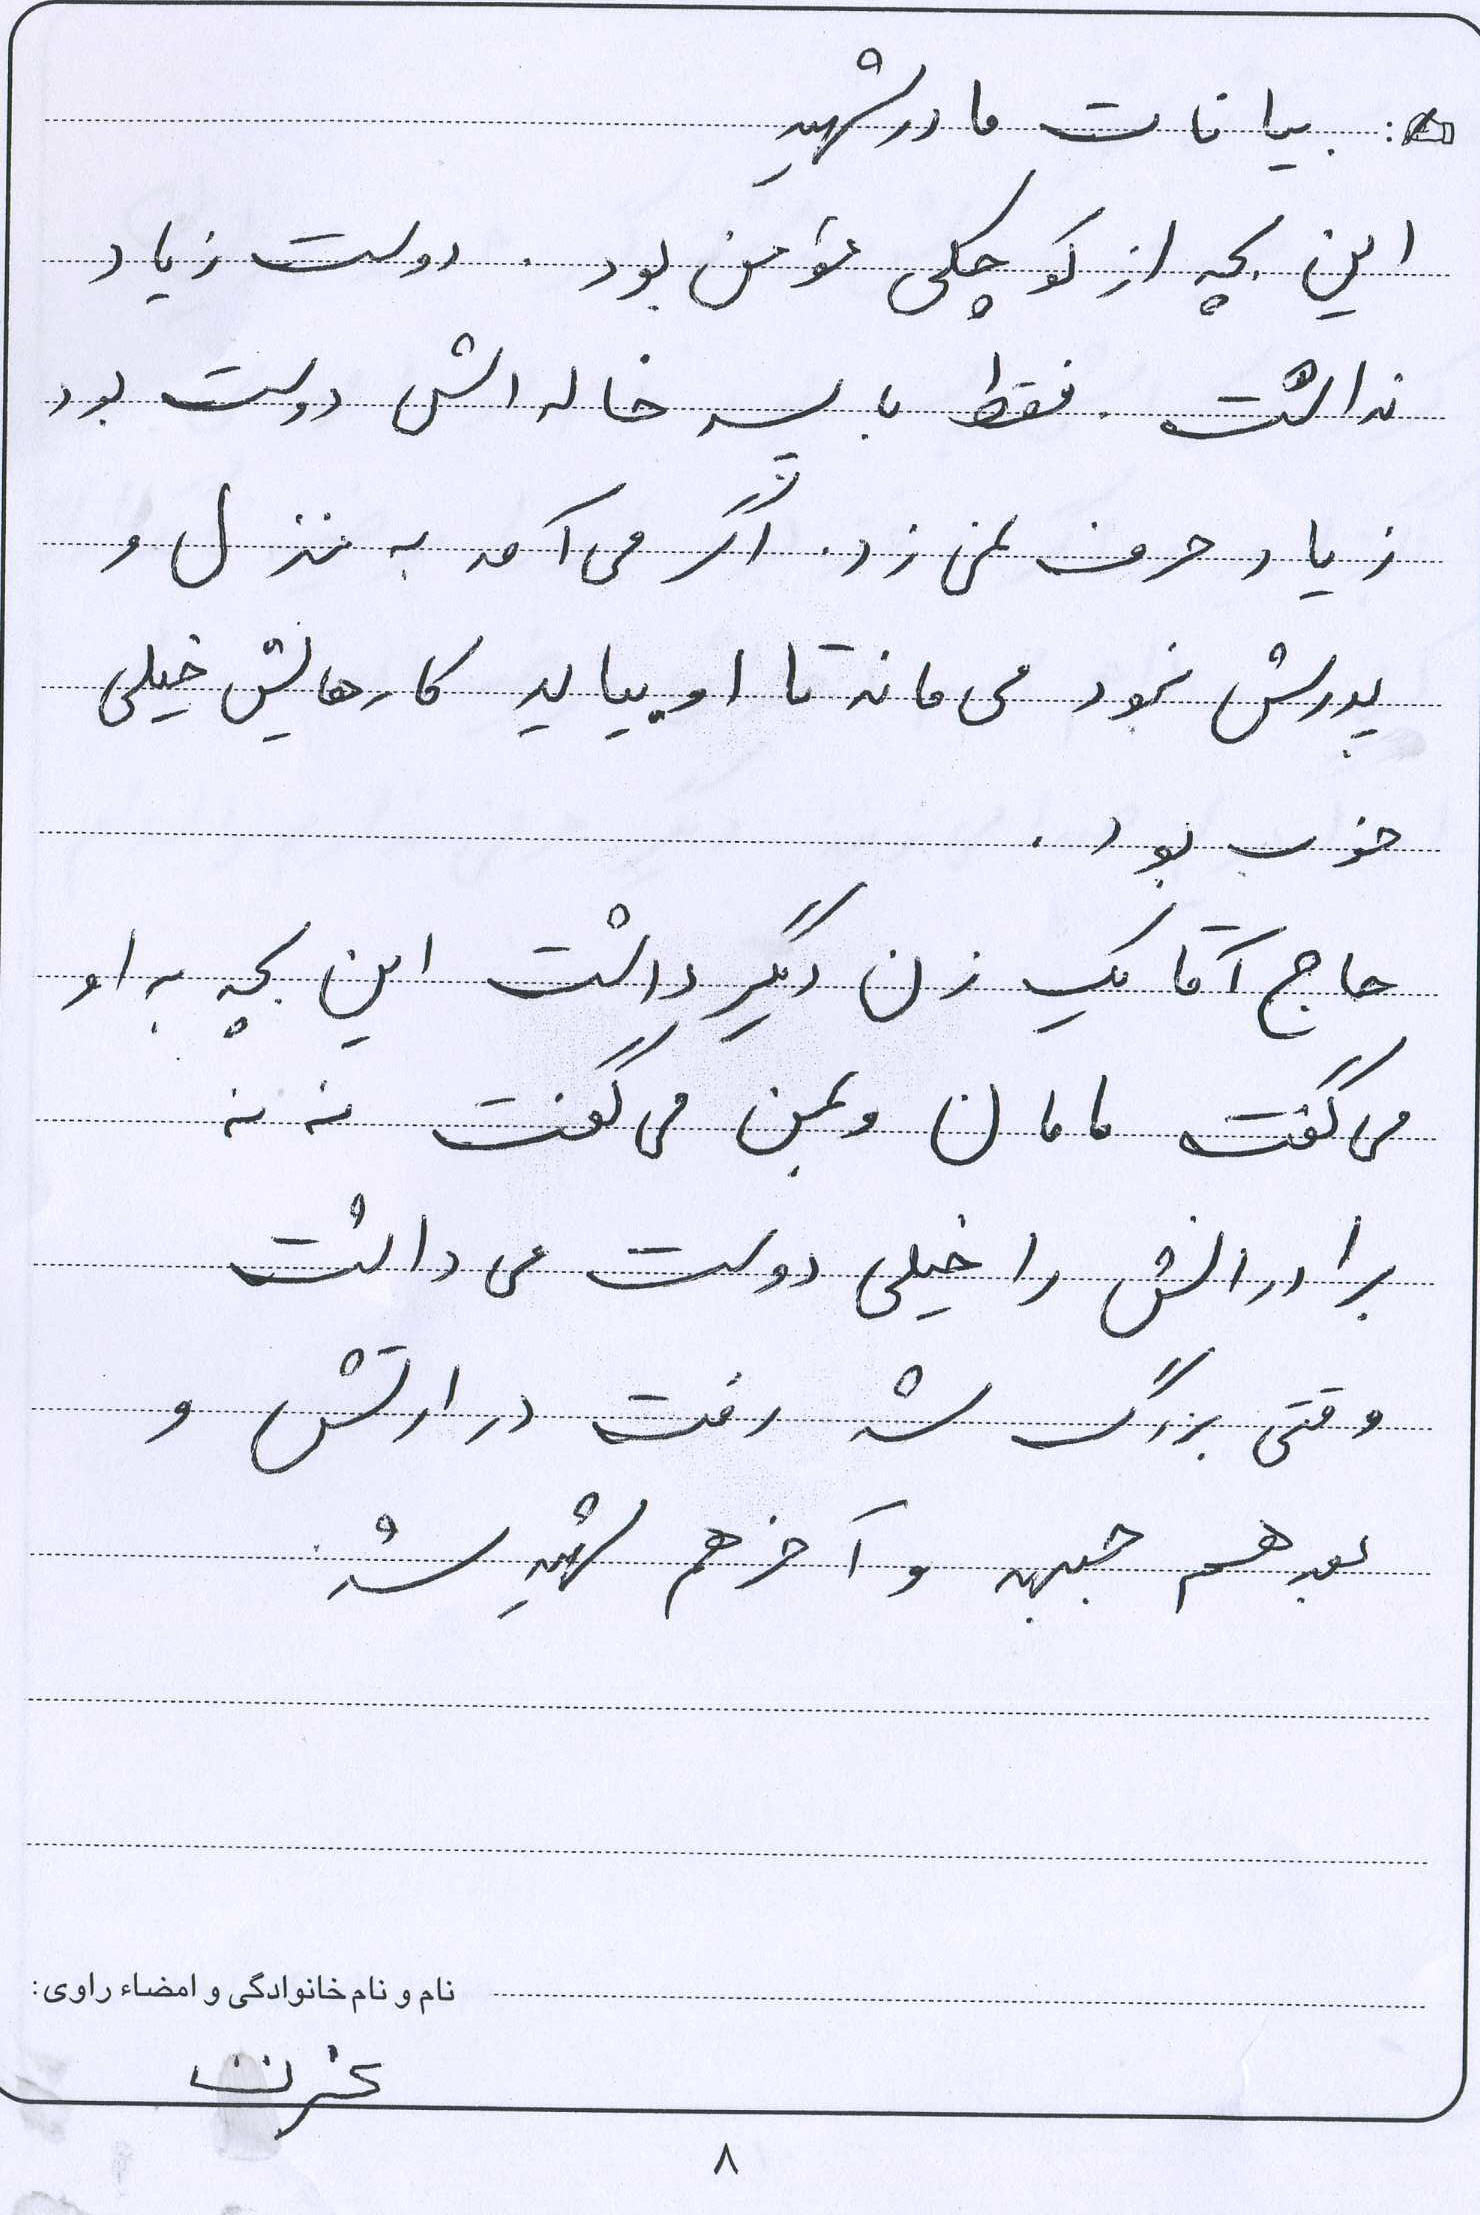 بیانات مادر شهید
این بچه از کوچکی مؤمن بود. دوست زیاد
نداشت. فقط با پسر خاله اش دوست بود
زیاد حرف نمی زد. اگر می آمد به منزل و
پدرش نبود می ماند تا او بیاید کارهایش خیلی
خوب بود.
حاج آقا یک زن دیگر داشت این بچه به او
می گفت مامان و بمن می گفت ننه
برادرانش را خیلی دوست می داشت
وقتی بزرگ شد رفت در ارتش و
بعد هم جبهه و آخر هم شهید شد.
نام و نام خانوادگی و امضاء راوی:
۸